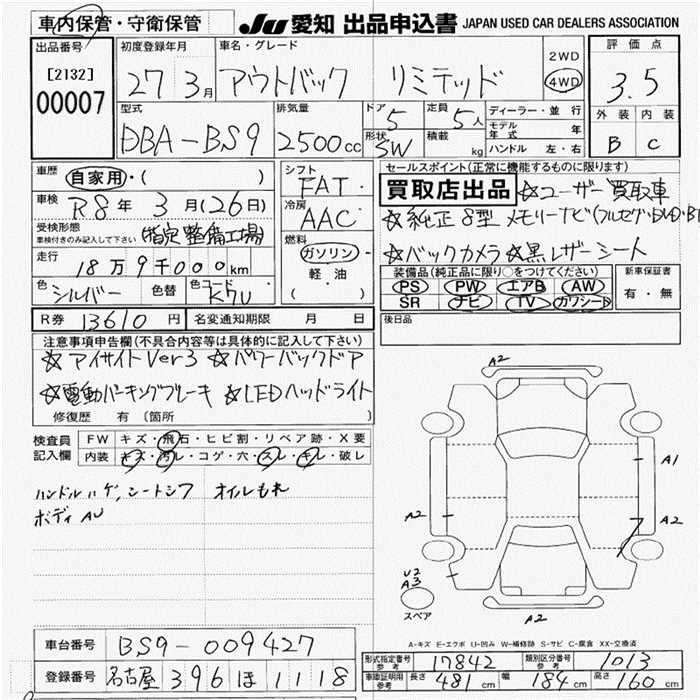 車内保管・守衛保管 JU 愛知 出品申込書 JAPAN USED CAR DEALERS ASSOCIATION
出品番号 初度登録年月 車名・グレード 2WD 評価点
[2132] 27 3月 アウトバック リミテッド 4WD 3.5
00007 型式 排気量 ドア 5 定員 5人 ディーラー・並行 外装 内装
DBA-BS9 2500cc 形状 SW 積載 kg モデル年式 年 B C
ハンドル 左・右
車歴 自家用・( ) シフト FAT セールスポイント(正常に機能するものに限ります)
車検 R8年 3月(26日) 冷房 AAC 買取店出品 ☆ユーザー買取車
受検形態 車検付きのみ記入して下さい (指定整備工場) 燃料 ☆純正8型 メモリーナビ(フルセグ・DVD・BT
走行 18万9千000km ガソリン・軽油・( ) ☆バックカメラ ☆黒レザーシート
色 シルバー 色替 色コード K7U 装備品(純正品に限り○をつけてください) 新車保証書
PS PW エアB AW 有・無
SR ナビ TV カワシート
R券 13610円 名変通知期限 月 日 後日品
注意事項申告欄(不具合内容等は具体的に記入して下さい)
☆アイサイトVer3 ☆パワーバックドア
☆電動パーキングブレーキ ☆LEDヘッドライト
修復歴 有 〔箇所 〕
検査員記入欄 FW キズ・飛石・ヒビ割・リペア跡・X要
内装 キズ・汚レ・コゲ・穴・スレ・キレ・破レ
ハンドルハゲ,シートシワ オイルもれ
ボディAU
A2
A1
A2 A2
U2
A3
スペア
A2
A-キズ E-エクボ U-凹み W-補修跡 S-サビ C-腐食 XX-交換済
車台番号 BS9-009427
登録番号 名古屋 396 ほ 1118
形式指定番号 参考 17842 類別区分番号 参考 1013
車庫証明用 参考 長さ 481cm 幅 184cm 高さ 160cm